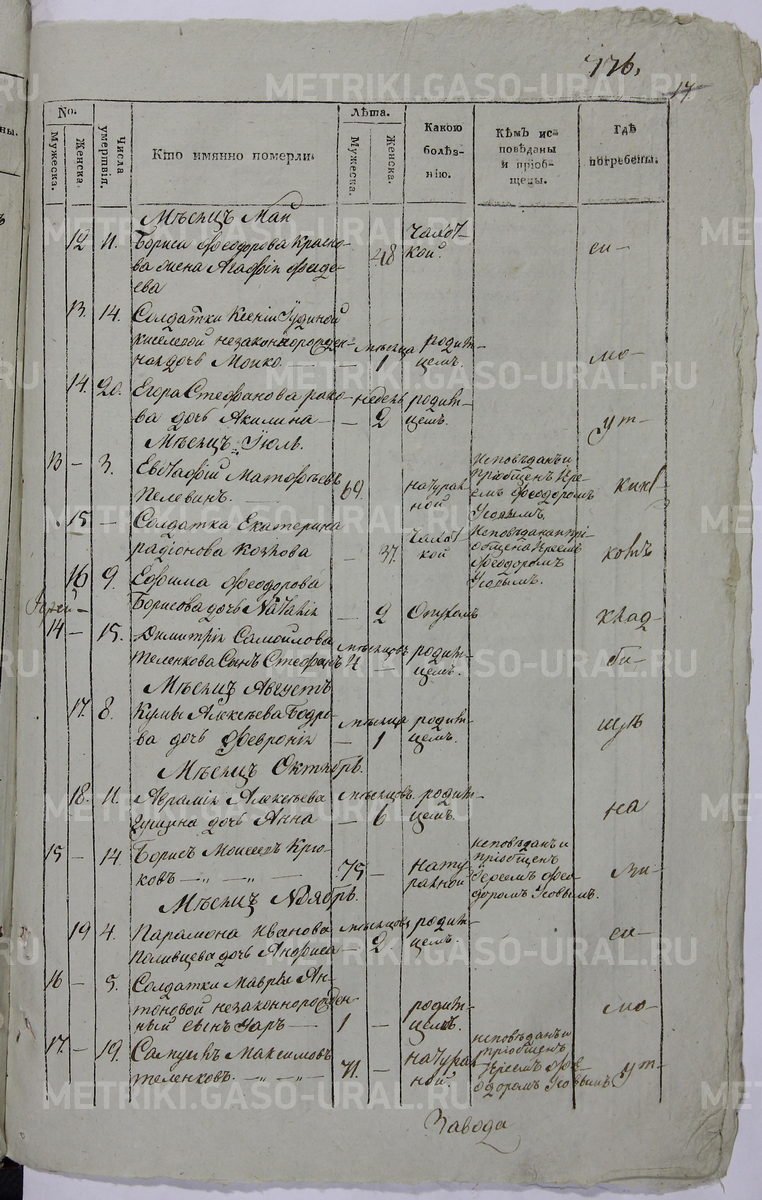 METRIKI.GASO-URAL.RU
17.
No.
Мужеска.
Женска.
Числа умертвія.
Кто имянно померли.
Лѣта.
Мужеска.
Женска.
Какою болѣз-
нію.
Кѣмъ ис-
повѣданы
и пріоб-
щены.
Гдѣ
погребены.
Мѣсяцъ Маи
12 11. Бориса Феодорова Красно-
ва жена Агафія Фаде-
ева
48 Чахот-
кой.
си-
13. 14. Солдатки Ксеніи Іудиной
незаконнорожден-
ная дочь
мѣсяца
1
родим-
цемъ.
мо-
14. 20. Егора Стефанова
ва дочь Акилина
недель
2
родим-
цемъ.
ут-
Мѣсяцъ Іюль.
13 - 3. Евстафій Матофѣевъ
Пелевинъ.
69.
натураль-
ной
исповѣданъ и
пріобщенъ іере-
емъ Феодоромъ
Усовымъ.
15 - Солдатка Екатерина
радіонова Козлова
37.
Чахот-
кой
Исповѣдана и прі-
общена іереемъ
Феодоромъ
Усовымъ.
16 9. Ефима Феодорова
Борисова дочь Наталія
2
14 - 15. Димитрія Самойлова
теленкова Сынъ Стефанъ
мѣсяцовъ
4 -
родим-
цемъ.
би-
Мѣсяцъ Августъ
17. 8. Кузмы Алексѣева Бодро-
ва дочь Февронія
мѣсяца
- 1
родим-
цемъ.
Мѣсяцъ Октябрь.
18. 11. Аврамія Алексѣева
дочь Анна
мѣсяцовъ
- 6
родим-
цемъ.
на
15 - 14 Борисъ Моисеевъ Крю-
ковъ
75 -
нату-
ральной
исповѣданъ и
пріобщенъ
іереемъ Фео-
доромъ Усовымъ.
Мѣсяцъ Ноябрь.
19 4. Парамона Иванова
дочь Анфиса
мѣсяцовъ
- 2
родим-
цемъ.
си-
16 - 5. Солдатки Мавры Ан-
тоновой незаконнорожден-
ный сынъ
1 -
родим-
цемъ.
мо-
17. - 19. Максимовъ
теленковъ.
71. -
натураль-
ной.
исповѣданъ и
пріобщенъ
іереемъ Фео-
доромъ Усовымъ
ут-
Завода